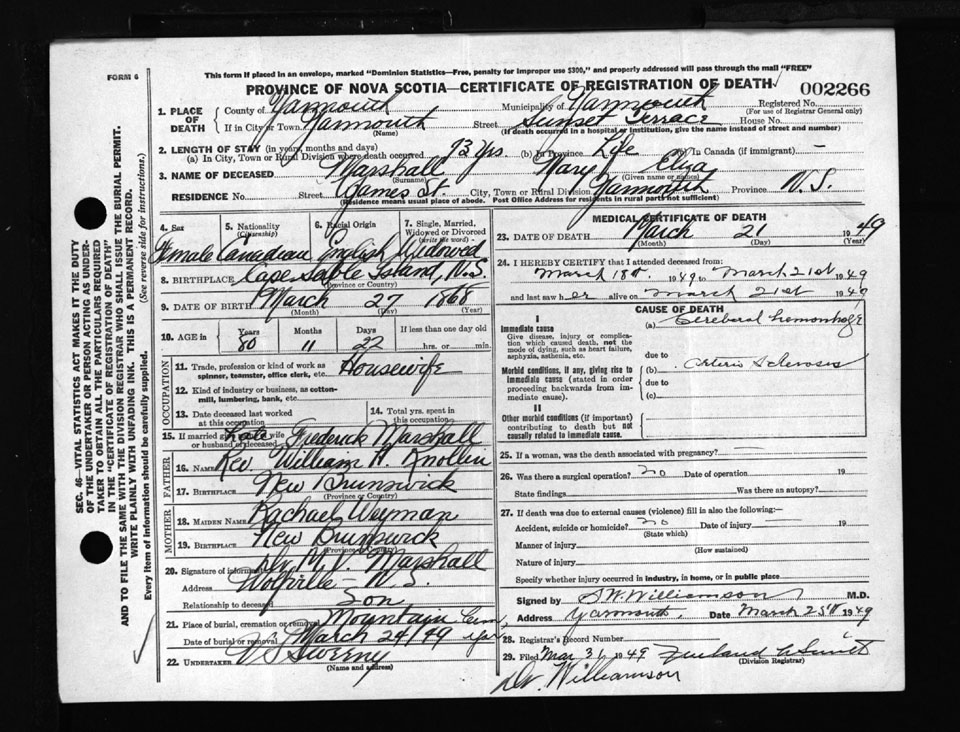 FORM 6
This form if placed in an envelope, marked "Dominion Statistics—Free, penalty for improper use $300," and properly addressed will pass through the mail "FREE"
PROVINCE OF NOVA SCOTIA—CERTIFICATE OF REGISTRATION OF DEATH
002266
1. PLACE OF DEATH
County of Yarmouth Municipality of Yarmouth Registered No.
(For use of Registrar General only)
If in City or Town Yarmouth Street Sunset Terrace House No.
(Name) (If death occurred in a hospital or institution, give the name instead of street and number)
2. LENGTH OF STAY (in years, months and days)
(a) In City, Town or Rural Division where death occurred 73 yrs (b) in Province Life In Canada (if immigrant) —
3. NAME OF DECEASED Marshall Mary Eliza
(Surname) (Given name or names)
RESIDENCE No. Street James St. City, Town or Rural Division Yarmouth Province N.S.
(Residence means usual place of abode. Post Office Address for residents in rural parts not sufficient)
4. Sex Female
5. Nationality (Citizenship) Canadian
6. Racial Origin English
7. Single, Married, Widowed or Divorced (write the word) Widowed
8. BIRTHPLACE Cape Sable Island, N.S.
(Province or Country)
9. DATE OF BIRTH March 27 1868
(Month) (Day) (Year)
10. AGE in Years 80 Months 11 Days 22 If less than one day old hrs. or min.
OCCUPATION
11. Trade, profession or kind of work as spinner, teamster, office clerk, etc. Housewife
12. Kind of industry or business, as cotton-mill, lumbering, bank, etc.
13. Date deceased last worked at this occupation
14. Total yrs. spent in this occupation
15. If married give name of wife or husband of deceased Late Frederick Marshall
FATHER
16. NAME Rev. William H. Knollin
17. BIRTHPLACE New Brunswick
(Province or Country)
MOTHER
18. MAIDEN NAME Rachael Weyman
19. BIRTHPLACE New Brunswick
(Province or Country)
20. Signature of informant Dr. M. V. Marshall
Address Wolfville - N.S.
Relationship to deceased Son
21. Place of burial, cremation or removal Mountain Cem,
Date of burial or removal March 24/49
22. UNDERTAKER V S Sweeny
(Name and address)
MEDICAL CERTIFICATE OF DEATH
23. DATE OF DEATH March 21 1949
(Month) (Day) (Year)
24. I HEREBY CERTIFY that I attended deceased from:
March 18th. 1949 to March 21st 1949
and last saw her alive on March 21st 1949
CAUSE OF DEATH
I
Immediate cause
Give disease, injury or complication which caused death, not the mode of dying, such as heart failure, asphyxia, asthenia, etc.
(a) Cerebral hemorrhage
due to
Morbid conditions, if any, giving rise to immediate cause (stated in order proceeding backwards from immediate cause).
(b) Arterio Sclerosis
due to
(c)
II
Other morbid conditions (if important) contributing to death but not causally related to immediate cause.
25. If a woman, was the death associated with pregnancy?
26. Was there a surgical operation? no Date of operation 19
State findings Was there an autopsy?
27. If death was due to external causes (violence) fill in also the following:
Accident, suicide or homicide? no Date of injury — 19
(State which)
Manner of injury
(How sustained)
Nature of injury
Specify whether injury occurred in industry, in home, or in public place
Signed by S W. Williamson M.D.
Address Yarmouth, Date March 25th 1949
28. Registrar's Record Number
29. Filed Mar 31 1949
(Division Registrar)
Dr. Williamson
SEC. 46—VITAL STATISTICS ACT MAKES IT THE DUTY OF THE UNDERTAKER OR PERSON ACTING AS UNDERTAKER TO OBTAIN ALL THE PARTICULARS REQUIRED IN THE "CERTIFICATE OF REGISTRATION OF DEATH" AND TO FILE THE SAME WITH THE DIVISION REGISTRAR WHO SHALL ISSUE THE BURIAL PERMIT.
WRITE PLAINLY WITH UNFADING INK. THIS IS A PERMANENT RECORD.
Every item of information should be carefully supplied. (See reverse side for instructions.)